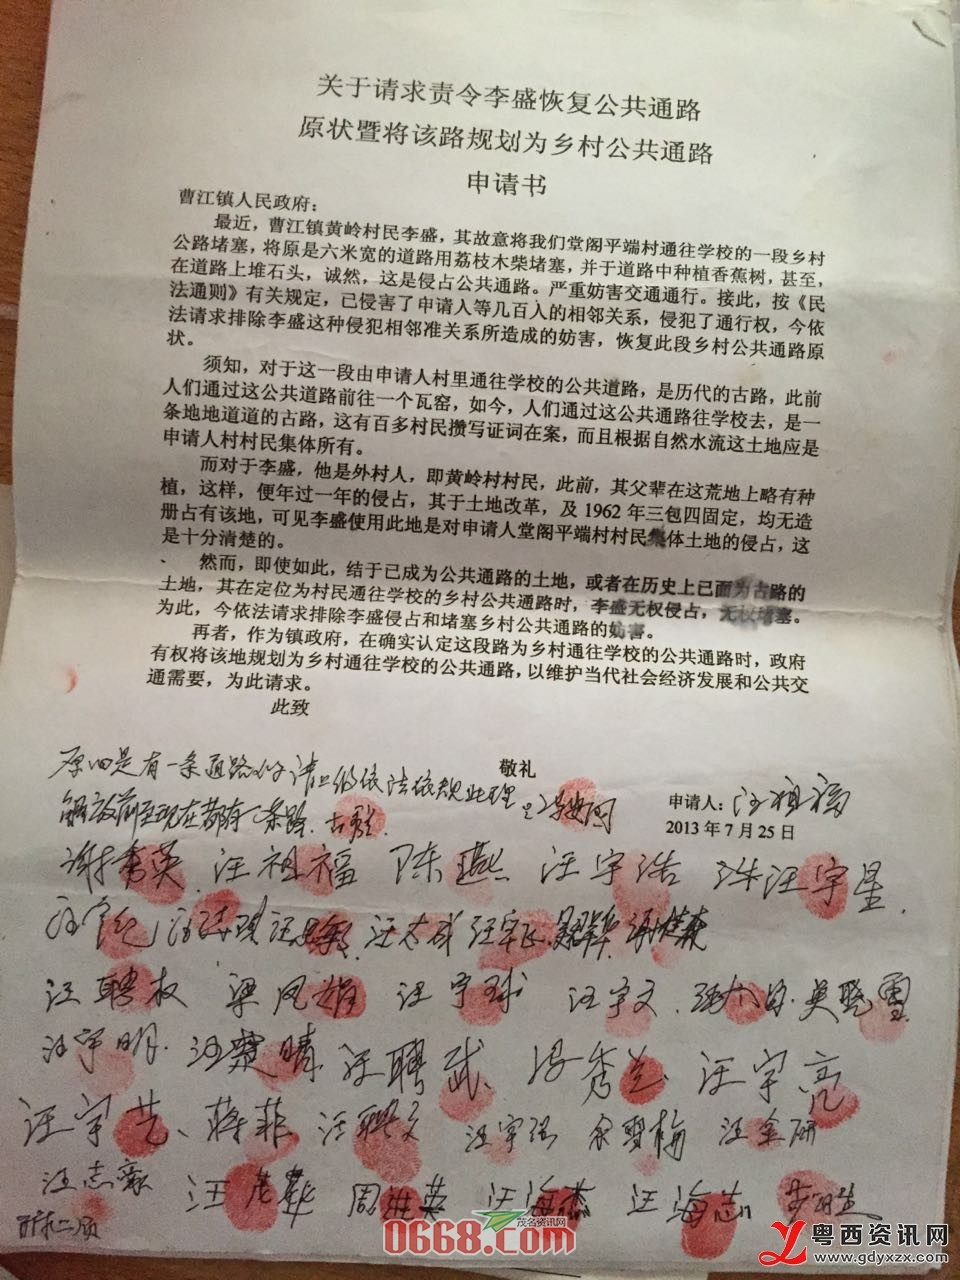 关于请求责令李盛恢复公共通路
原状暨将该路规划为乡村公共通路
申请书
曹江镇人民政府：
最近，曹江镇黄岭村民李盛，其故意将我们堂阁平端村通往学校的一段乡村
公路堵塞，将原是六米宽的道路用荔枝木柴堵塞，并于道路中种植香蕉树，甚至，
在道路上堆石头，诚然，这是侵占公共通路。严重妨害交通通行。接此，按《民
法通则》有关规定，已侵害了申请人等几百入的相邻关系，侵犯了通行权，今依
法请求排除李盛这种侵犯相邻准关系所造成的妨害，恢复此段乡村公共通路原
状。
须知，对于这一段由申请人村里通往学校的公共道路，是历代的古路，此前
人们通过这公共道路前往一个瓦窑，如今，人们通过这公共通路往学校去，是一
条地地道道的古路，这有百多村民攒写证词在案，而且根据自然水流这土地应是
申请人村村民集体所有。
而对于李盛，他是外村人，即黄岭村村民，此前，其父辈在这荒地上略有种
植，这样，便年过一年的侵占，其于土地改革，及 1962 年三包四固定，均无造
册占有该地，可见李盛使用此地是对申请人堂阁平端村村民集体土地的侵占，这
是十分清楚的。
、 然而，即使如此，结于已成为公共通路的土地，或者在历史上已面为古路的
土地，其在定位为村民通往学校的乡村公共通路时，李盛无权侵占，无权堵塞。
为此，今依法请求排除李盛侵占和堵塞乡村公共通路的妨害。
再者，作为镇政府，在确实认定这段路为乡村通往学校的公共通路时，政府
有权将该地规划为乡村通往学校的公共通路，以维护当代社会经济发展和公共交
通需要，为此请求。
此致
敬礼
原旧是有一条通路 请 依法依规处理
申请人：汪祖福
解放前至现在都有一条路
2013 年 7 月 25 日
谢秀英 汪祖福 陈燕 汪宇浩 汪宇星
汪聘权 梁凤娟 汪宇球 汪宇文 吴晓雪
汪宇明 汪楚晴 汪聘武 秀兰 汪宇亮
汪宇艺 蒋菲 汪聘文 汪宇强 余 梅 汪金研
汪志豪 汪 周 英 汪海杰 汪海志
0668.com
茂名资讯网
粤西资讯网
www.gdyxzx.com